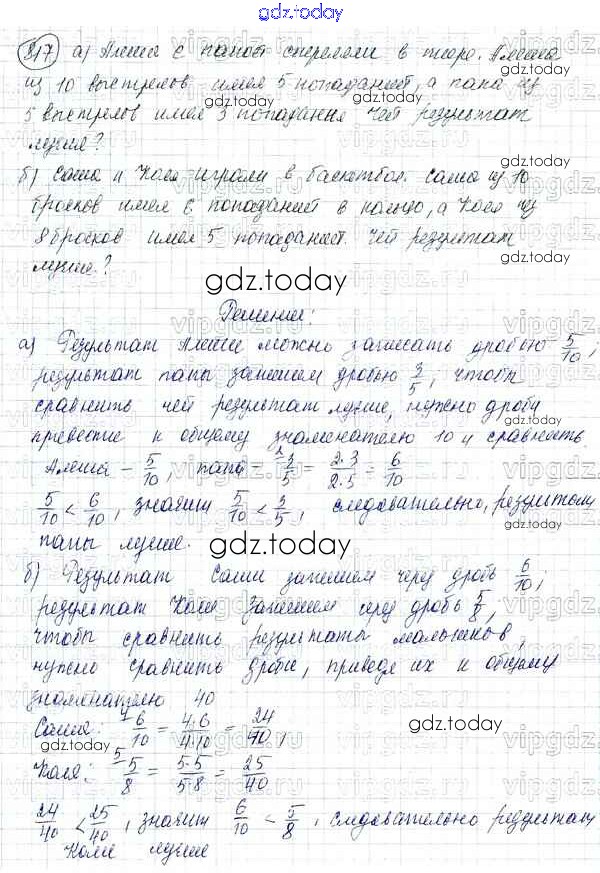 817 а) Алёша с папой стреляли в тире. Алёша
из 10 выстрелов имел 5 попаданий, а папа из
5 выстрелов имел 3 попадания. Чей результат
лучше?
б) Саша и Коля играли в баскетбол. Саша из 10
бросков имел 6 попаданий в кольцо, а Коля из
8 бросков имел 5 попаданий. Чей результат
лучше?
gdz.today
Решение:
а) Результат Алёши можно записать дробью 5/10;
результат папы запишем дробью 3/5, чтобы
сравнить чей результат лучше, нужно дроби
привести к общему знаменателю 10 и сравнить
Алёша – 5/10, папа – 3/5 = 2·3/2·5 = 6/10
5/10 < 6/10, значит 5/10 < 3/5, следовательно, результат
папы лучше.
gdz.today
б) Результат Саши запишем через дробь 6/10;
результат Коли запишем через дробь 5/8;
чтобы сравнить результаты мальчиков,
нужно сравнить дроби, приведя их к общему
знаменателю 40
Саша: 6/10 = 4·6/4·10 = 24/40,
gdz.today
Коля: 5/8 = 5·5/5·8 = 25/40
24/40 < 25/40, значит 6/10 < 5/8, следовательно результат
Коли лучше